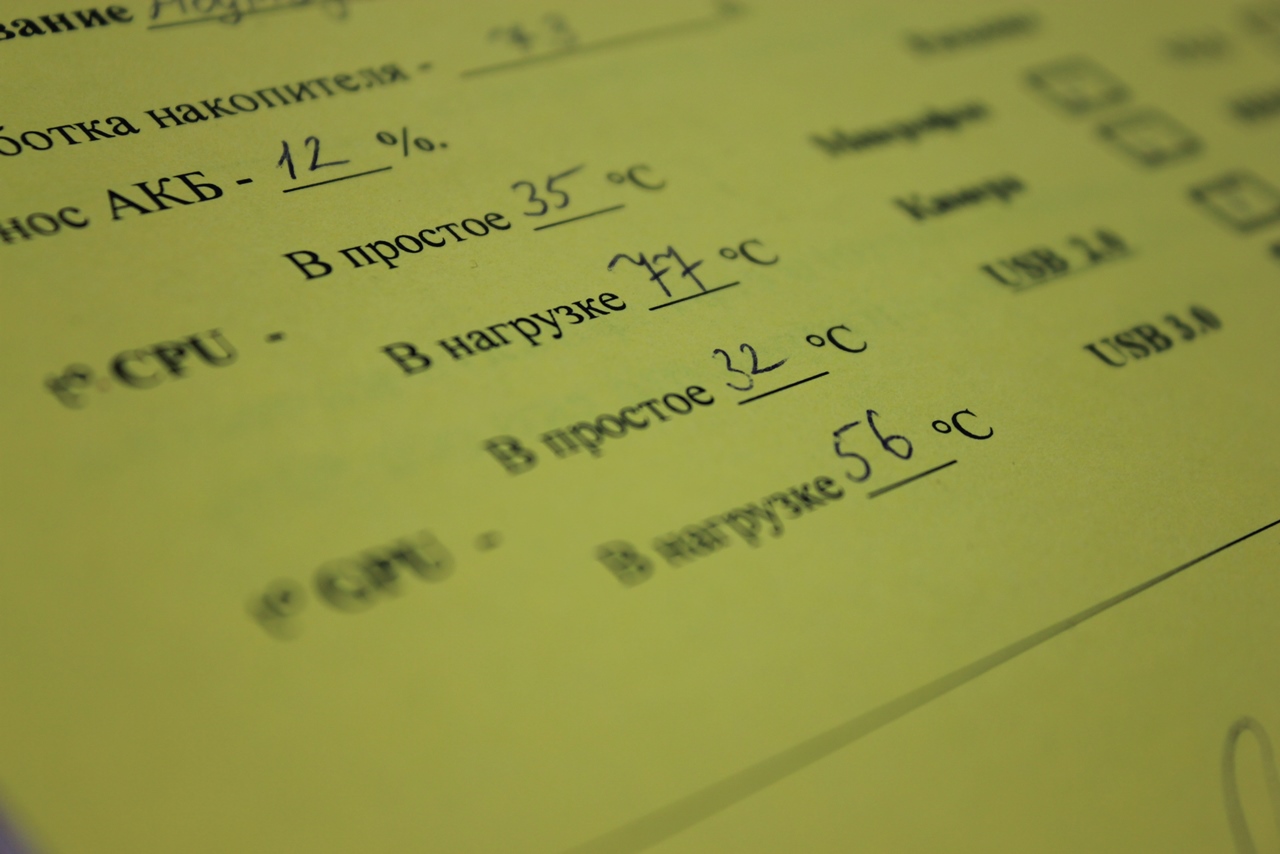 вание
ботка накопителя - 73
нос АКБ - 12 %.
В простое 35 °C
t° CPU -
В нагрузке 77 °C
В простое 32 °C
t° GPU -
В нагрузке 56 °C
Микрофон
Камера
USB 2.0
USB 3.0